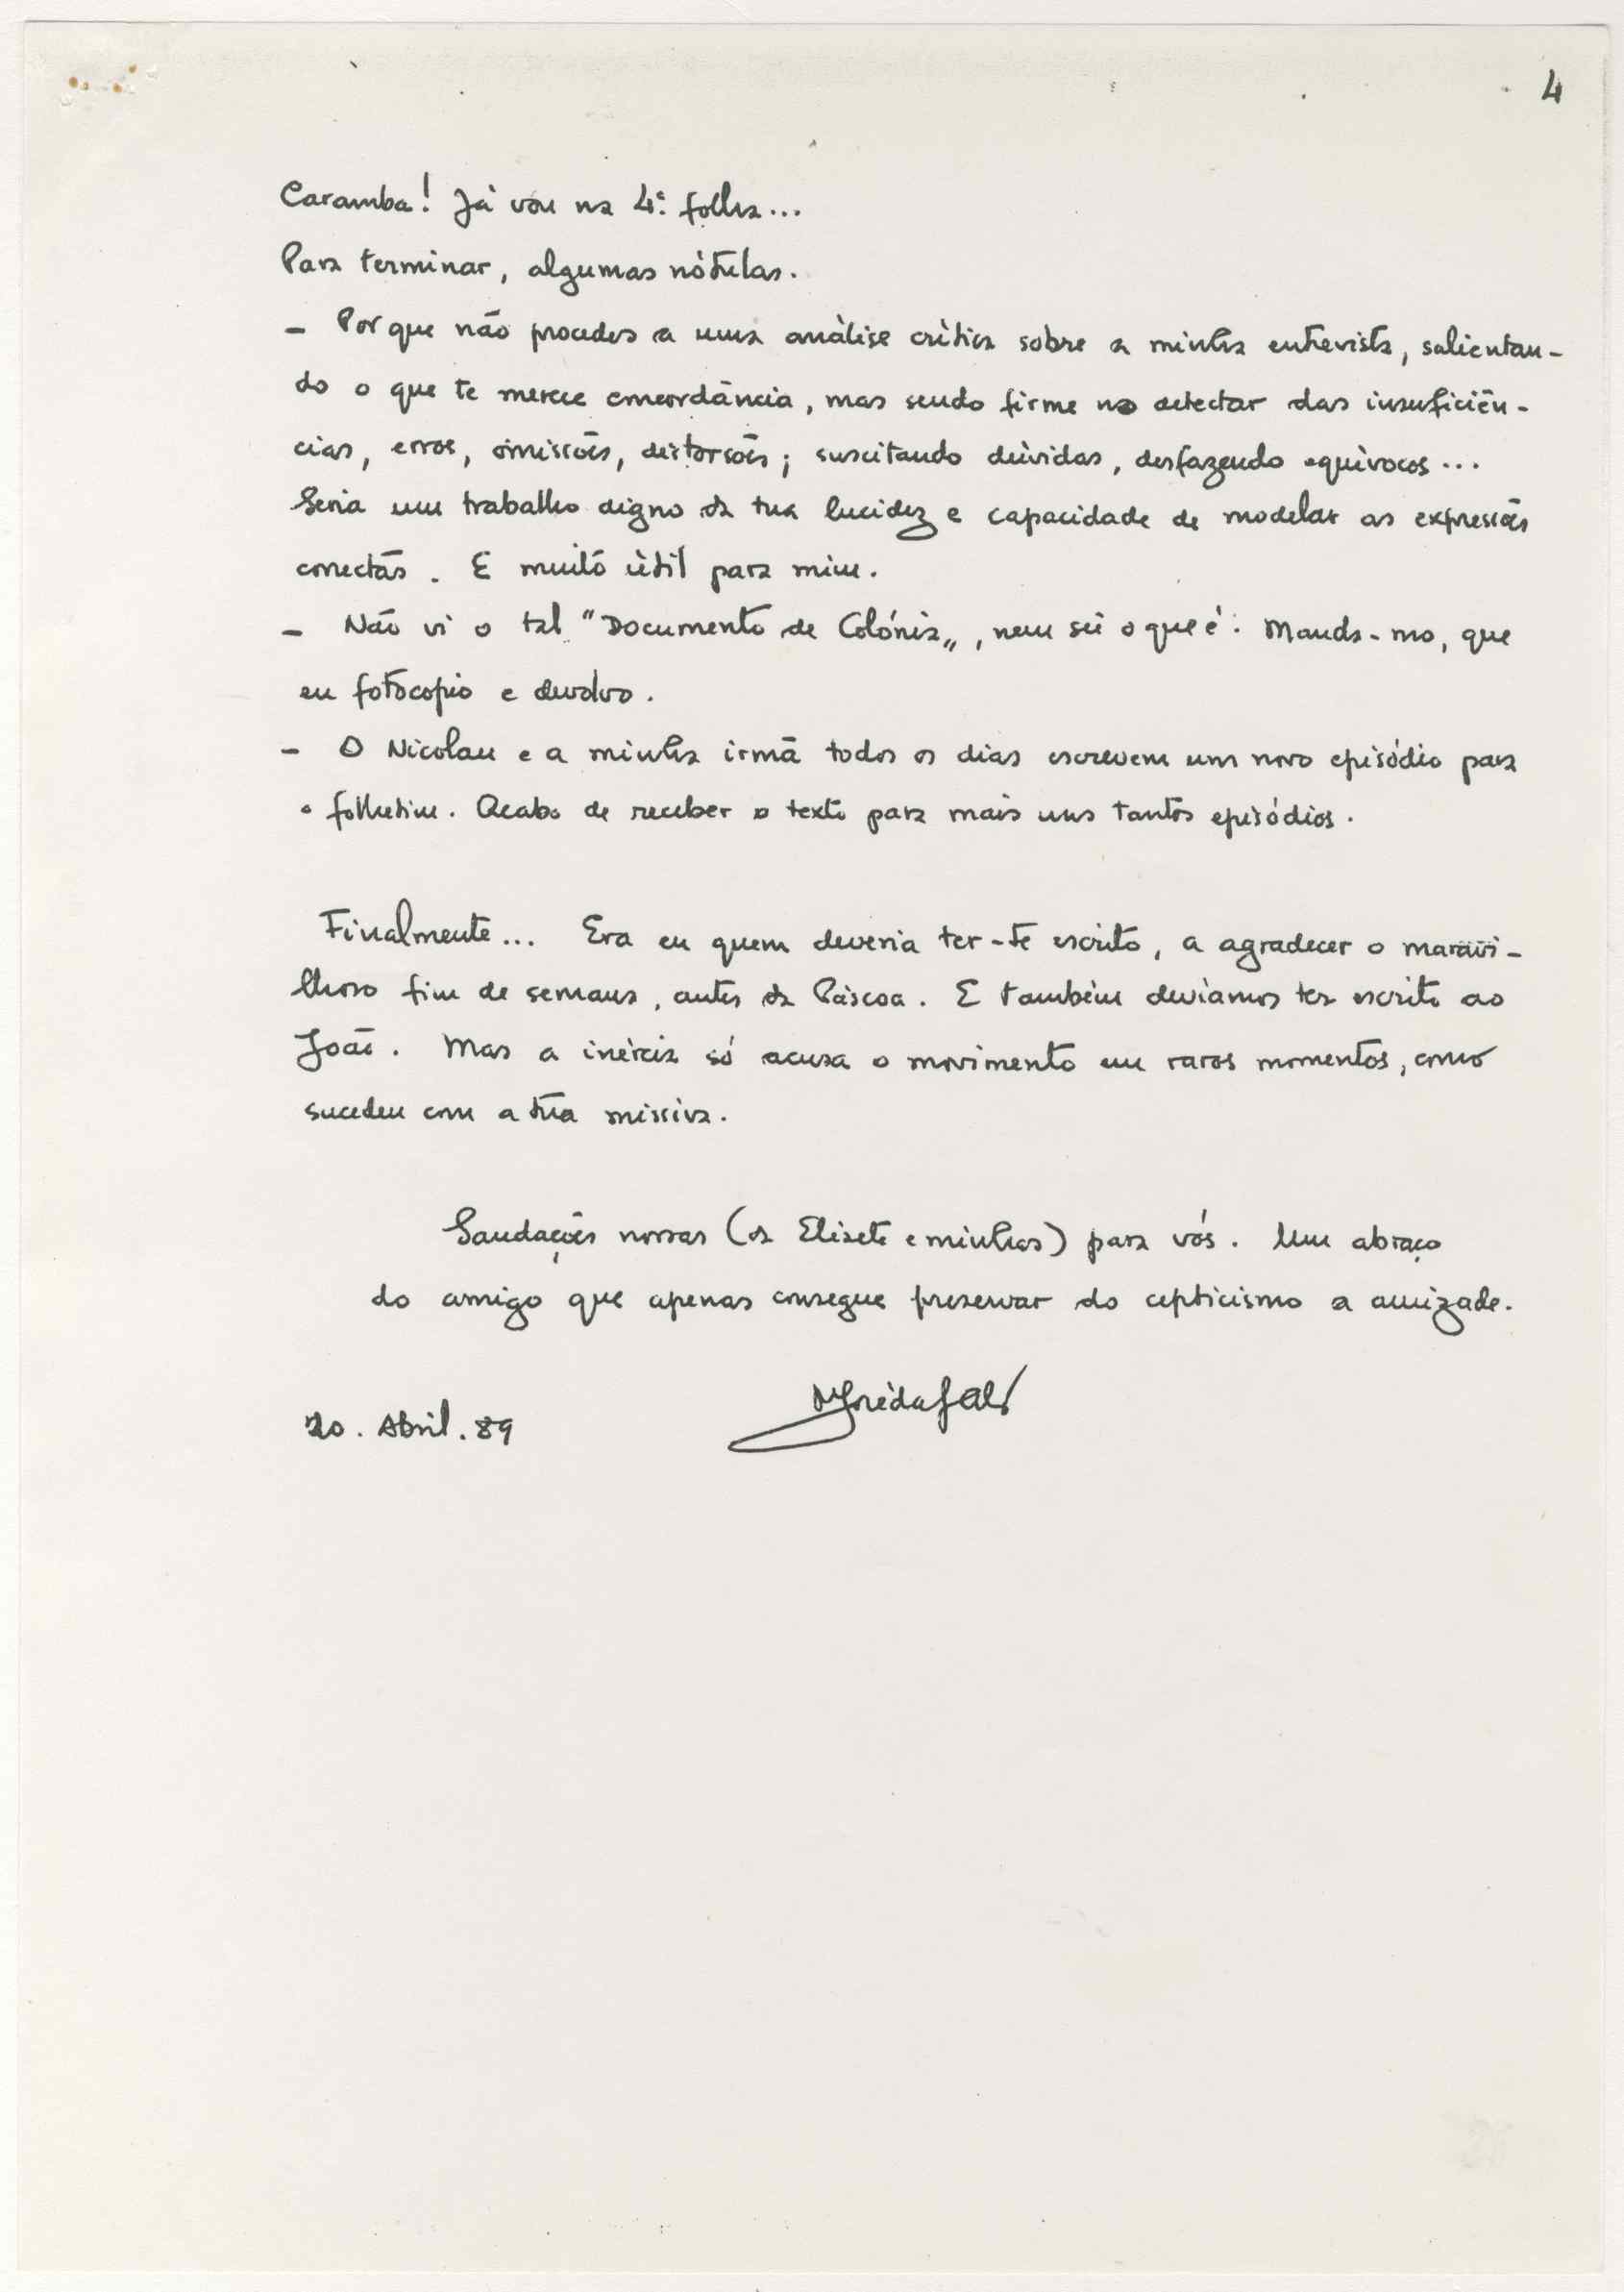 4
Caramba! Já vou na 4ª folha...
Para terminar, algumas nótulas.
- Porque não procedes a uma análise crítica sobre a minha entrevista, salientan-
do o que te merece concordância, mas sendo firme no detectar das insuficiên-
cias, erros, omissões, distorsões; suscitando dúvidas, desfazendo equívocos...
Seria um trabalho digno da tua lucidez e capacidade de modelar as expressões
correctas. E muito útil para mim.
- Não vi o tal "Documento de Colónia", nem sei o que é. Manda-mo, que
eu fotocopio e devolvo.
- O Nicolau e a minha irmã todos os dias escrevem um novo episódio para
o folhetim. Acabo de receber o texto para mais uns tantos episódios.
Finalmente... Era eu quem deveria ter-te escrito, a agradecer o maravi-
lhoso fim de semana, antes da Páscoa. E também devíamos ter escrito ao
João. Mas a inércia só acusa o movimento em raros momentos, como
sucedeu com a tua missiva.
Saudações nossas (da Elisete e minhas) para vós. Um abraço
do amigo que apenas consegue preservar do cepticismo a amizade.
20. Abril. 89